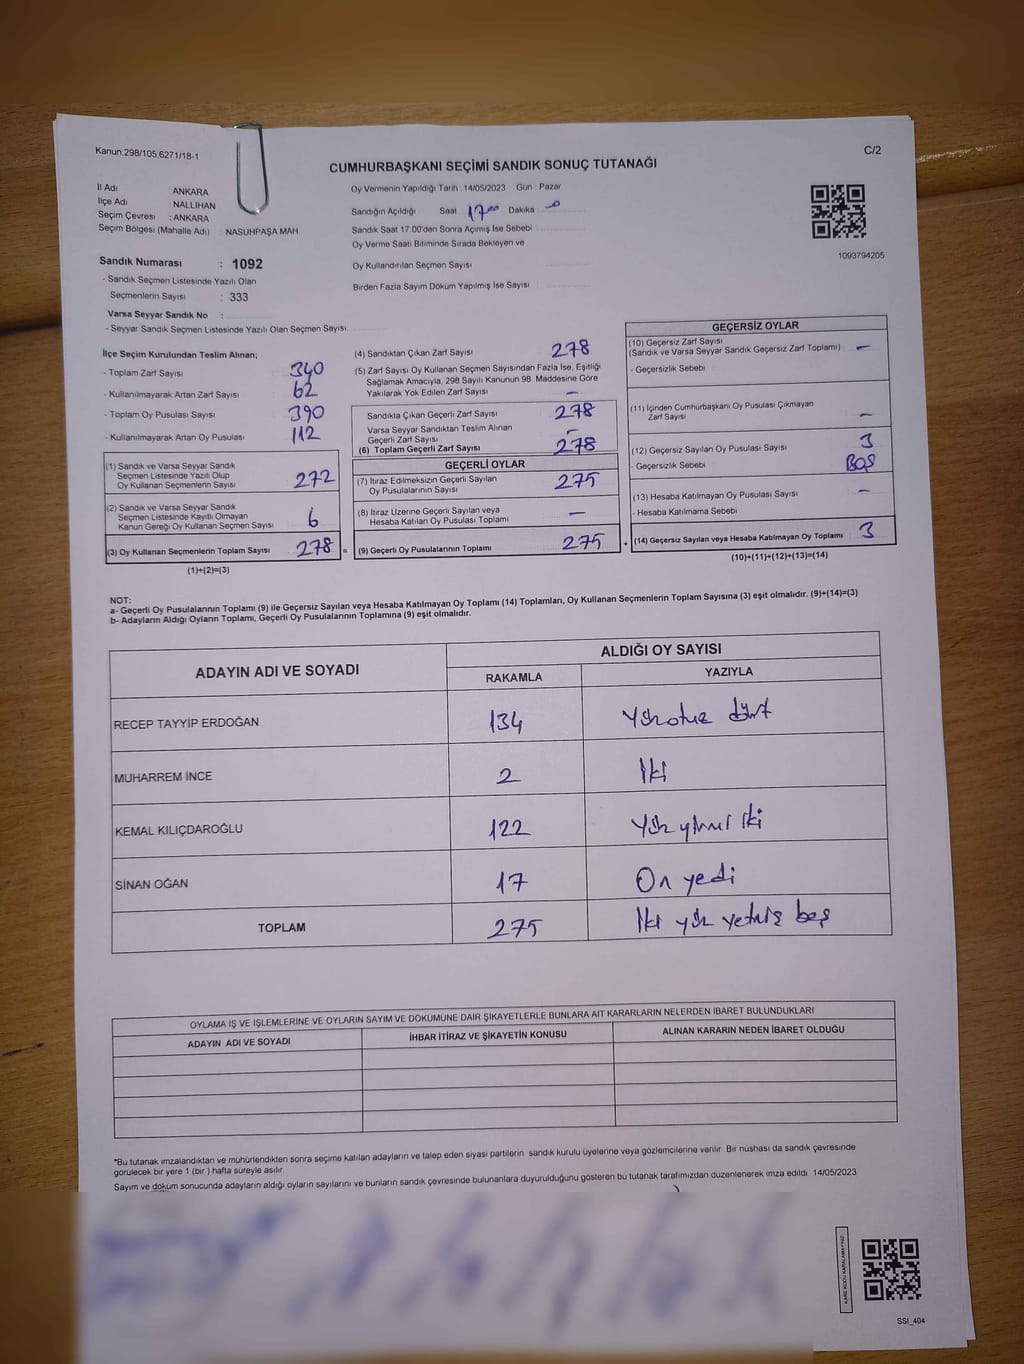 Kanun 298/105,6271/18-1
C/2
CUMHURBAŞKANI SEÇİMİ SANDIK SONUÇ TUTANAĞI
İl Adı ANKARA
İlçe Adı NALLIHAN
Seçim Çevresi : ANKARA
Seçim Bölgesi (Mahalle Adı) : NASUHPAŞA MAH
Oy Vermenin Yapıldığı Tarih : 14/05/2023 Gün : Pazar
Sandığın Açıldığı Saat 17 Dakika
Sandık Saat 17:00'den Sonra Açılmış İse Sebebi
Oy Verme Saati Bitiminde Sırada Bekleyen ve
Oy Kullandırılan Seçmen Sayısı
Birden Fazla Sayım Döküm Yapılmış İse Sayısı
1093794205
Sandık Numarası : 1092
- Sandık Seçmen Listesinde Yazılı Olan
Seçmenlerin Sayısı : 333
Varsa Seyyar Sandık No :
- Seyyar Sandık Seçmen Listesinde Yazılı Olan Seçmen Sayısı:
İlçe Seçim Kurulundan Teslim Alınan;
- Toplam Zarf Sayısı 340
- Kullanılmayarak Artan Zarf Sayısı 62
- Toplam Oy Pusulası Sayısı 390
- Kullanılmayarak Artan Oy Pusulası 112
(1) Sandık ve Varsa Seyyar Sandık
Seçmen Listesinde Yazılı Olup
Oy Kullanan Seçmenlerin Sayısı 272
(2) Sandık ve Varsa Seyyar Sandık
Seçmen Listesinde Kayıtlı Olmayan
Kanun Gereği Oy Kullanan Seçmen Sayısı 6
(3) Oy Kullanan Seçmenlerin Toplam Sayısı 278 =
(1)+(2)=(3)
(4) Sandıktan Çıkan Zarf Sayısı 278
(5) Zarf Sayısı Oy Kullanan Seçmen Sayısından Fazla İse, Eşitliği
Sağlamak Amacıyla, 298 Sayılı Kanunun 98. Maddesine Göre
Yakılarak Yok Edilen Zarf Sayısı —
Sandıkta Çıkan Geçerli Zarf Sayısı 278
Varsa Seyyar Sandıktan Teslim Alınan
Geçerli Zarf Sayısı —
(6) Toplam Geçerli Zarf Sayısı 278
GEÇERLİ OYLAR
(7) İtiraz Edilmeksizin Geçerli Sayılan
Oy Pusulalarının Sayısı 275
(8) İtiraz Üzerine Geçerli Sayılan veya
Hesaba Katılan Oy Pusulası Toplamı —
(9) Geçerli Oy Pusulalarının Toplamı 275 +
GEÇERSİZ OYLAR
(10) Geçersiz Zarf Sayısı
(Sandık ve Varsa Seyyar Sandık Geçersiz Zarf Toplamı) —
- Geçersizlik Sebebi
(11) İçinden Cumhurbaşkanı Oy Pusulası Çıkmayan
Zarf Sayısı —
(12) Geçersiz Sayılan Oy Pusulası Sayısı 3
- Geçersizlik Sebebi BOŞ
(13) Hesaba Katılmayan Oy Pusulası Sayısı —
- Hesaba Katılmama Sebebi
(14) Geçersiz Sayılan veya Hesaba Katılmayan Oy Toplamı 3
(10)+(11)+(12)+(13)=(14)
NOT:
a- Geçerli Oy Pusulalarının Toplamı (9) ile Geçersiz Sayılan veya Hesaba Katılmayan Oy Toplamı (14) Toplamları, Oy Kullanan Seçmenlerin Toplam Sayısına (3) eşit olmalıdır. (9)+(14)=(3)
b- Adayların Aldığı Oyların Toplamı, Geçerli Oy Pusulalarının Toplamına (9) eşit olmalıdır.
ADAYIN ADI VE SOYADI ALDIĞI OY SAYISI
RAKAMLA YAZIYLA
RECEP TAYYİP ERDOĞAN 134 Yüzotuz dört
MUHARREM İNCE 2 İki
KEMAL KILIÇDAROĞLU 122 Yüz yirmi iki
SİNAN OĞAN 17 On yedi
TOPLAM 275 İki yüz yetmiş beş
OYLAMA İŞ VE İŞLEMLERİNE VE OYLARIN SAYIM VE DÖKÜMÜNE DAİR ŞİKAYETLERLE BUNLARA AİT KARARLARIN NELERDEN İBARET BULUNDUKLARI
ADAYIN ADI VE SOYADI İHBAR İTİRAZ VE ŞİKAYETİN KONUSU ALINAN KARARIN NEDEN İBARET OLDUĞU
*Bu tutanak imzalandıktan ve mühürlendikten sonra seçime katılan adayların ve talep eden siyasi partilerin sandık kurulu üyelerine veya gözlemcilerine verilir. Bir nüshası da sandık çevresinde
görülecek bir yere 1 (bir ) hafta süreyle asılır.
Sayım ve döküm sonucunda adayların aldığı oyların sayılarını ve bunların sandık çevresinde bulunanlara duyurulduğunu gösteren bu tutanak tarafımızdan düzenlenerek imza edildi. 14/05/2023
KARE KODU KARALAMAYINIZ!
SSI_404